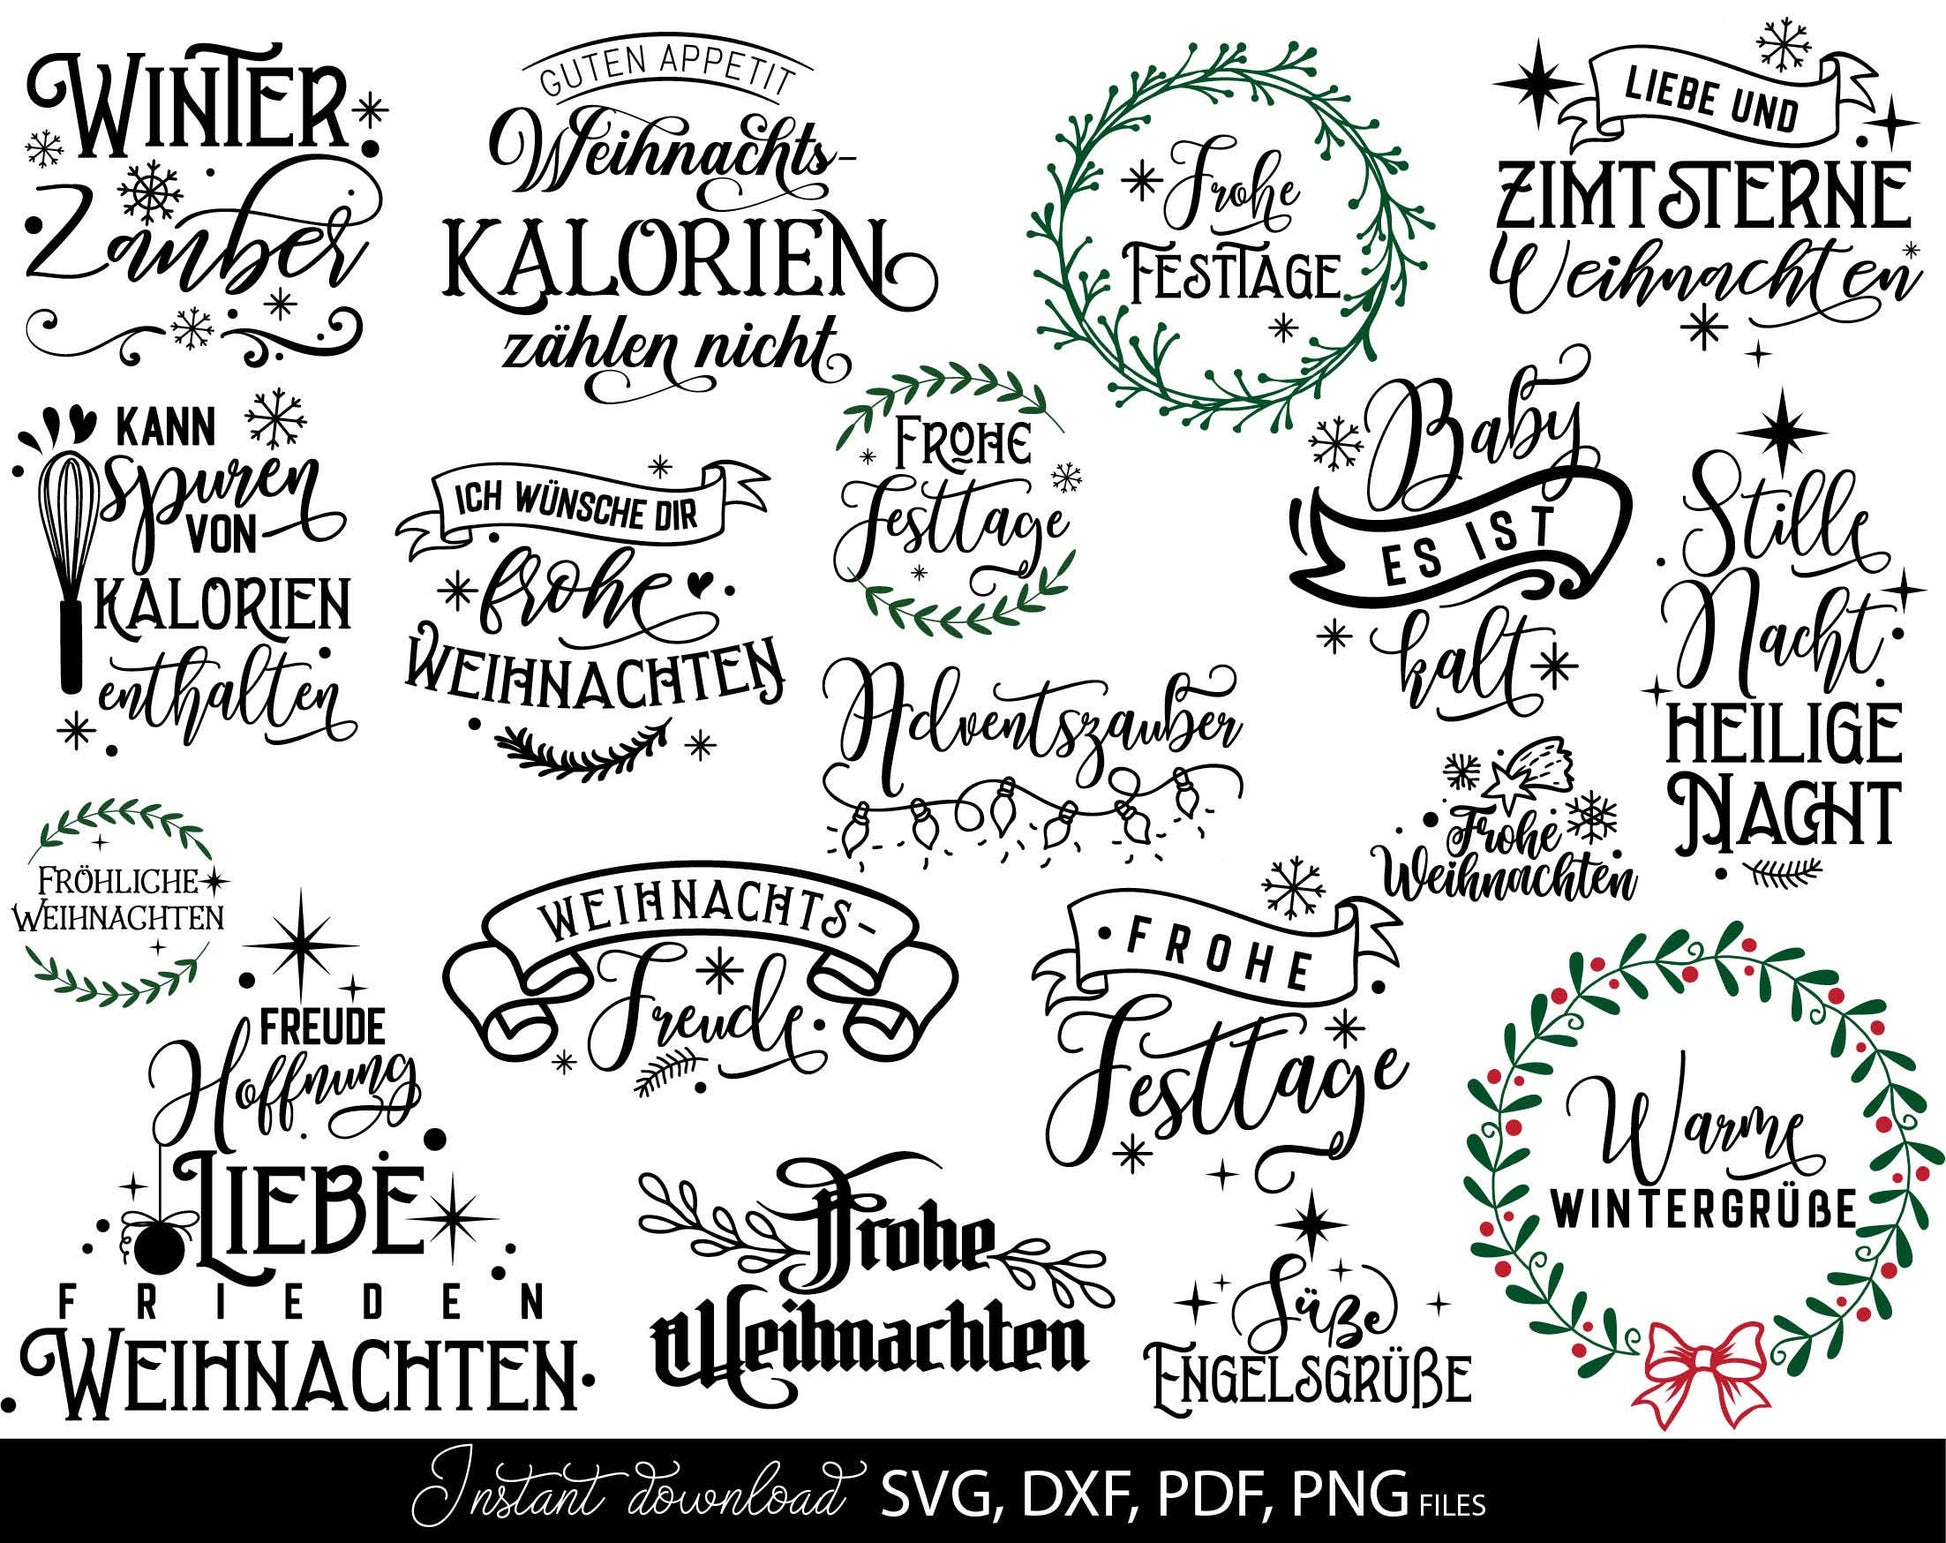 WINTER
Zauber
GUTEN APPETIT
Weihnachts-
KALORIEN
zählen nicht
Frohe
FESTTAGE
LIEBE UND
ZIMTSTERNE
Weihnachten
KANN
spuren
VON
KALORIEN
enthalten
ICH WÜNSCHE DIR
frohe
WEIHNACHTEN
FROHE
Festtage
Baby
ES IST
kalt
Stille
Nacht
HEILIGE
NACHT
Adventszauber
Frohe
Weihnachten
FRÖHLICHE
WEIHNACHTEN
WEIHNACHTS-
Freude
FROHE
Festtage
FREUDE
Hoffnung
LIEBE
FRIEDEN
WEIHNACHTEN
Frohe
Weihnachten
Süße
ENGELSGRÜßE
Warme
WINTERGRÜßE
Instant download SVG, DXF, PDF, PNG FILES